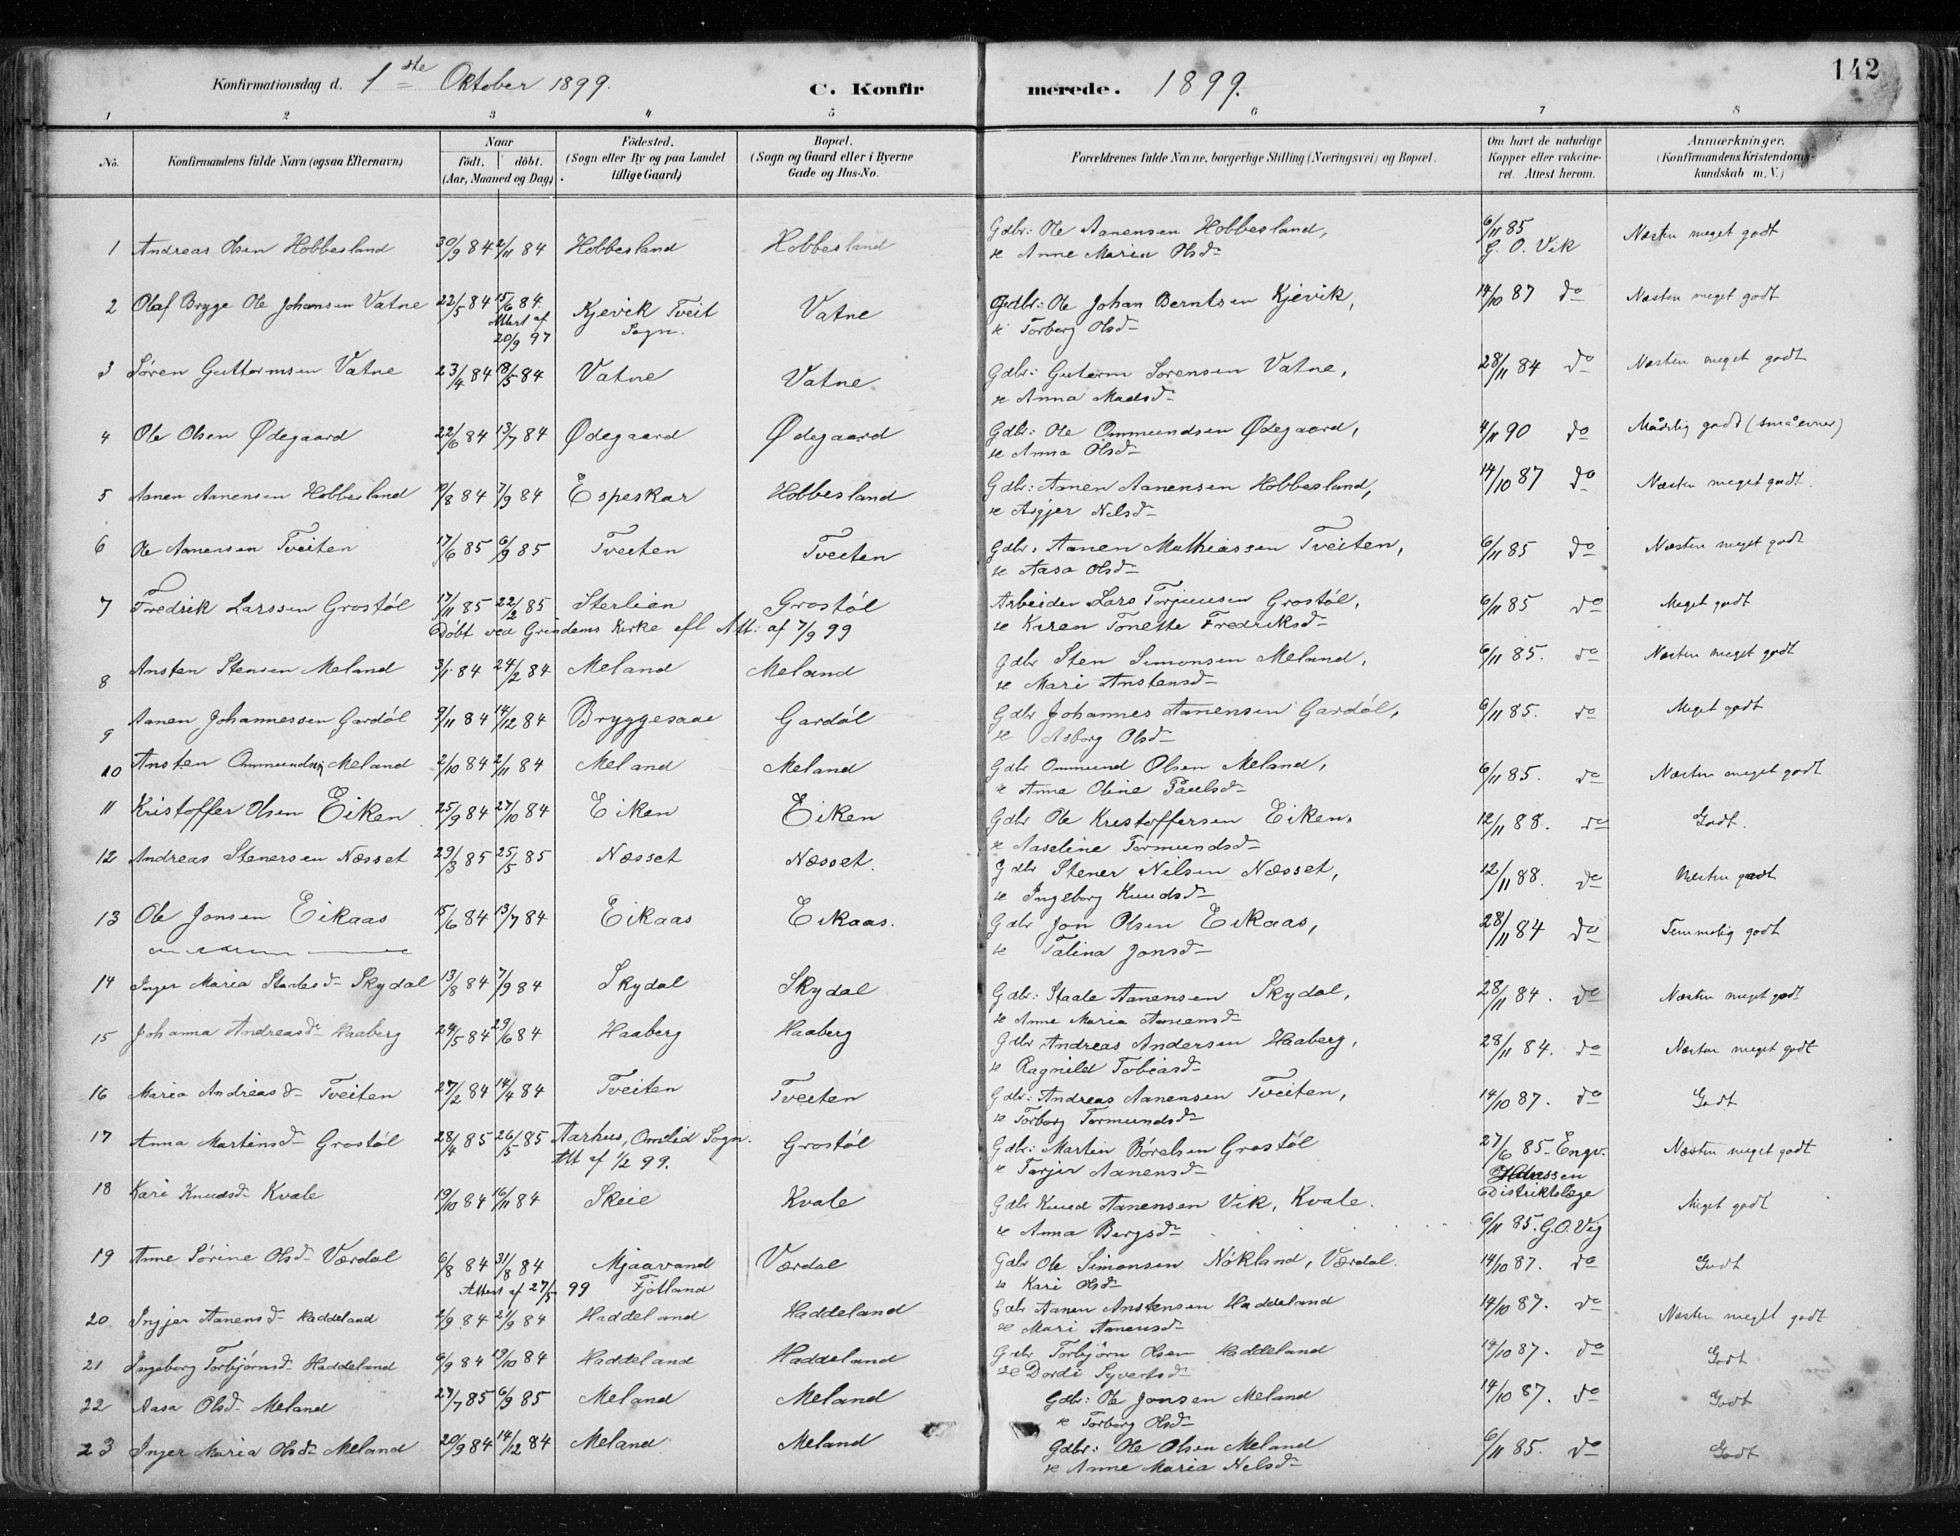 142
Konfirmationsdag d. 1ste Oktober 1899. C. Konfir merede. 1899.
1 2 3 4 5 6 7 8
No. Konfirmandens fulde Navn (ogsaa Efternavn) Naar født. døbt. (Aar, Maaned og Dag) Fødested. (Sogn eller By og paa Landet tillige Gaard) Bopæl. (Sogn og Gaard eller i Byerne Gade og Hus-No. Forældrenes fulde Navne, borgerlige Stilling (Næringsvei) og Bopæl. Om havt de naturlige Kopper eller vakcineret. Attest herom. Anmærkninger. (Konfirmandens Kristendomskundskab m. V.)
1 Andreas Olsen Hobbesland 30/9 84 2/11 84 Hobbesland Hobbesland Gdbr: Ole Aanensen Hobbesland, 6/11 85 Næsten meget godt
& Anne Maria Olsd. G. O. Vik
2 Olaf Bryge Ole Johansen Vatne 22/5 84 15/6 84. Kjevik Tveit Vatne Gdbr: Ole Johan Berntsen Kjevik, 14/10 87 do Næsten meget godt
Attest af 20/9 97 Sogn. & Torborg Olsd.
3 Søren Guttormsen Vatne 23/4 84 18/5 84 Vatne Vatne Gdbr: Guterm Sørensen Vatne, 28/11 84 do Næsten meget godt
& Anna Madsd.
4 Ole Olsen Ødegaard 22/6 84 13/7 84 Ødegaard Ødegaard Gdbr: Ole Ommundsen Ødegaard, 4/11 90 do Mådelig godt (små evner)
& Anna Olsd.
5 Aanen Aanensen Hobbesland 19/8 84 7/9 84 Espeskar Hobbesland Gdbr: Aanen Aanensen Hobbesland, 14/10 87 do Næsten meget godt.
& Asgjer Nelsd.
6 Ole Aanensen Tveiten 17/6 85 6/9 85 Tveiten Tveiten Gdbr: Aanen Mathiassen Tveiten, 6/11 85 do Næsten meget godt
& Aasa Olsd.
7 Fredrik Larssen Grostøl 17/11 85 22/2 85 Sterlien Grostøl Arbeider Lars Torjussen Grostøl, 6/11 85 do Meget godt
Døbt ved Grindems Kirke efl Att: af 7/9 99 & Karen Tonette Fredriksd.
8 Ansten Stensen Meland 3/1 84 24/2 84 Meland Meland Gdbr Sten Simonsen Meland, 6/11 85. do Næsten meget godt
& Mari Anstensd.
9 Aanen Johannessen Gardøl 9/11 84 14/12 84 Bryggesaae Gardøl Gdbr Johannes Aanensen Gardøl, 6/11 85. do Meget godt
& Asborg Olsd.
10 Ansten Ommundsen Meland 2/10 84 2/11 84 Meland Meland Gdbr Ommund Olsen Meland, 6/11 85. do Næsten meget godt
& Anne Oline Paulsd.
11 Kristoffer Olsen Eiken 25/9 84 27/10 84 Eiken Eiken Gdbr Ole Kristoffersen Eiken, 12/11 88. do Godt.
& Aaseline Tormundsd.
12 Andreas Stenersen Næsset 29/3 85 25/5 85 Næsset Næsset. Gdbr Stener Nilsen Næsset, 12/11 88. do Næsten godt
& Ingeborg Knudsd.
13 Ole Jonsen Eikaas 15/6 84 13/7 84 Eikaas Eikaas. Gdbr Jon Olsen Eikaas, 28/11 84 do Temmelig godt
& Talina Jonsd.
14 Inger Maria Staalesd. Skydal 13/8 84 7/9 84 Skydal Skydal Gdbr: Staale Aanensen Skydal, 28/11 84. do Næsten meget godt
& Anne Maria Aanensd.
15 Johanna Andreasd. Haaberg 24/5 84 29/6 84 Haaberg Haaberg Gdbr Andreas Andersen Haaberg, 28/11 84. do Næsten meget godt
& Ragnild Tobiasd.
16 Maria Andreasd. Tveiten 27/2 84 14/4 84 Tveiten Tveiten Gdbr: Andreas Aanensen Tveiten, 14/10 87. do Godt
& Torborg Tormundsd.
17 Anna Martinsd. Grostøl 28/4 85 26/5 85 Aarhus, Omlid Sogn. Grostøl Gdbr: Martin Børelsen Grostøl 27/6 85. Engv. Næsten meget godt
Att af 1/2 99. & Tarjer Aanensd. Distriktslæge
18 Kari Knudsd. Kvale 19/10 84 16/11 84 Skeie Kvale Gdbr Knud Aanensen Vik, Kvale. Meget godt
& Anna Bergsd. 6/11 85. G.O. Vig
19 Anne Sørine Olsd. Værdal 6/8 84 31/8 84 Mjaavand Værdal Gdbr Ole Simonsen Nökland, Værdal. 14/10 87. do Godt
Attest af 27/5 99 Fjotland & Kari Olsd.
20 Ingjer Aanensd. Haddeland 2/9 84 21/9 84 Haddeland Haddeland Gdbr Aanen Anstensen Haddeland 14/10 87. do Næsten meget godt
& Mari Aanensd.
21 Ingeborg Torbjørnsd. Haddeland 6/9 84 19/10 84 Haddeland Haddeland Gdbr Torbjørn Olsen Haddeland 14/10 87. do Godt
& Dordi Syvertsd.
22 Aasa Olsd. Meland 27/7 85 6/9 85 Meland Meland Gdbr: Ole Jonsen Meland 14/10 87. do Godt
& Torborg Olsd.
23 Inger Maria Olsd. Meland 20/9 84 14/12 84 Meland Meland Gdbr: Ole Olsen Meland 6/11 85. do Godt
& Anne Maria Nelsd.